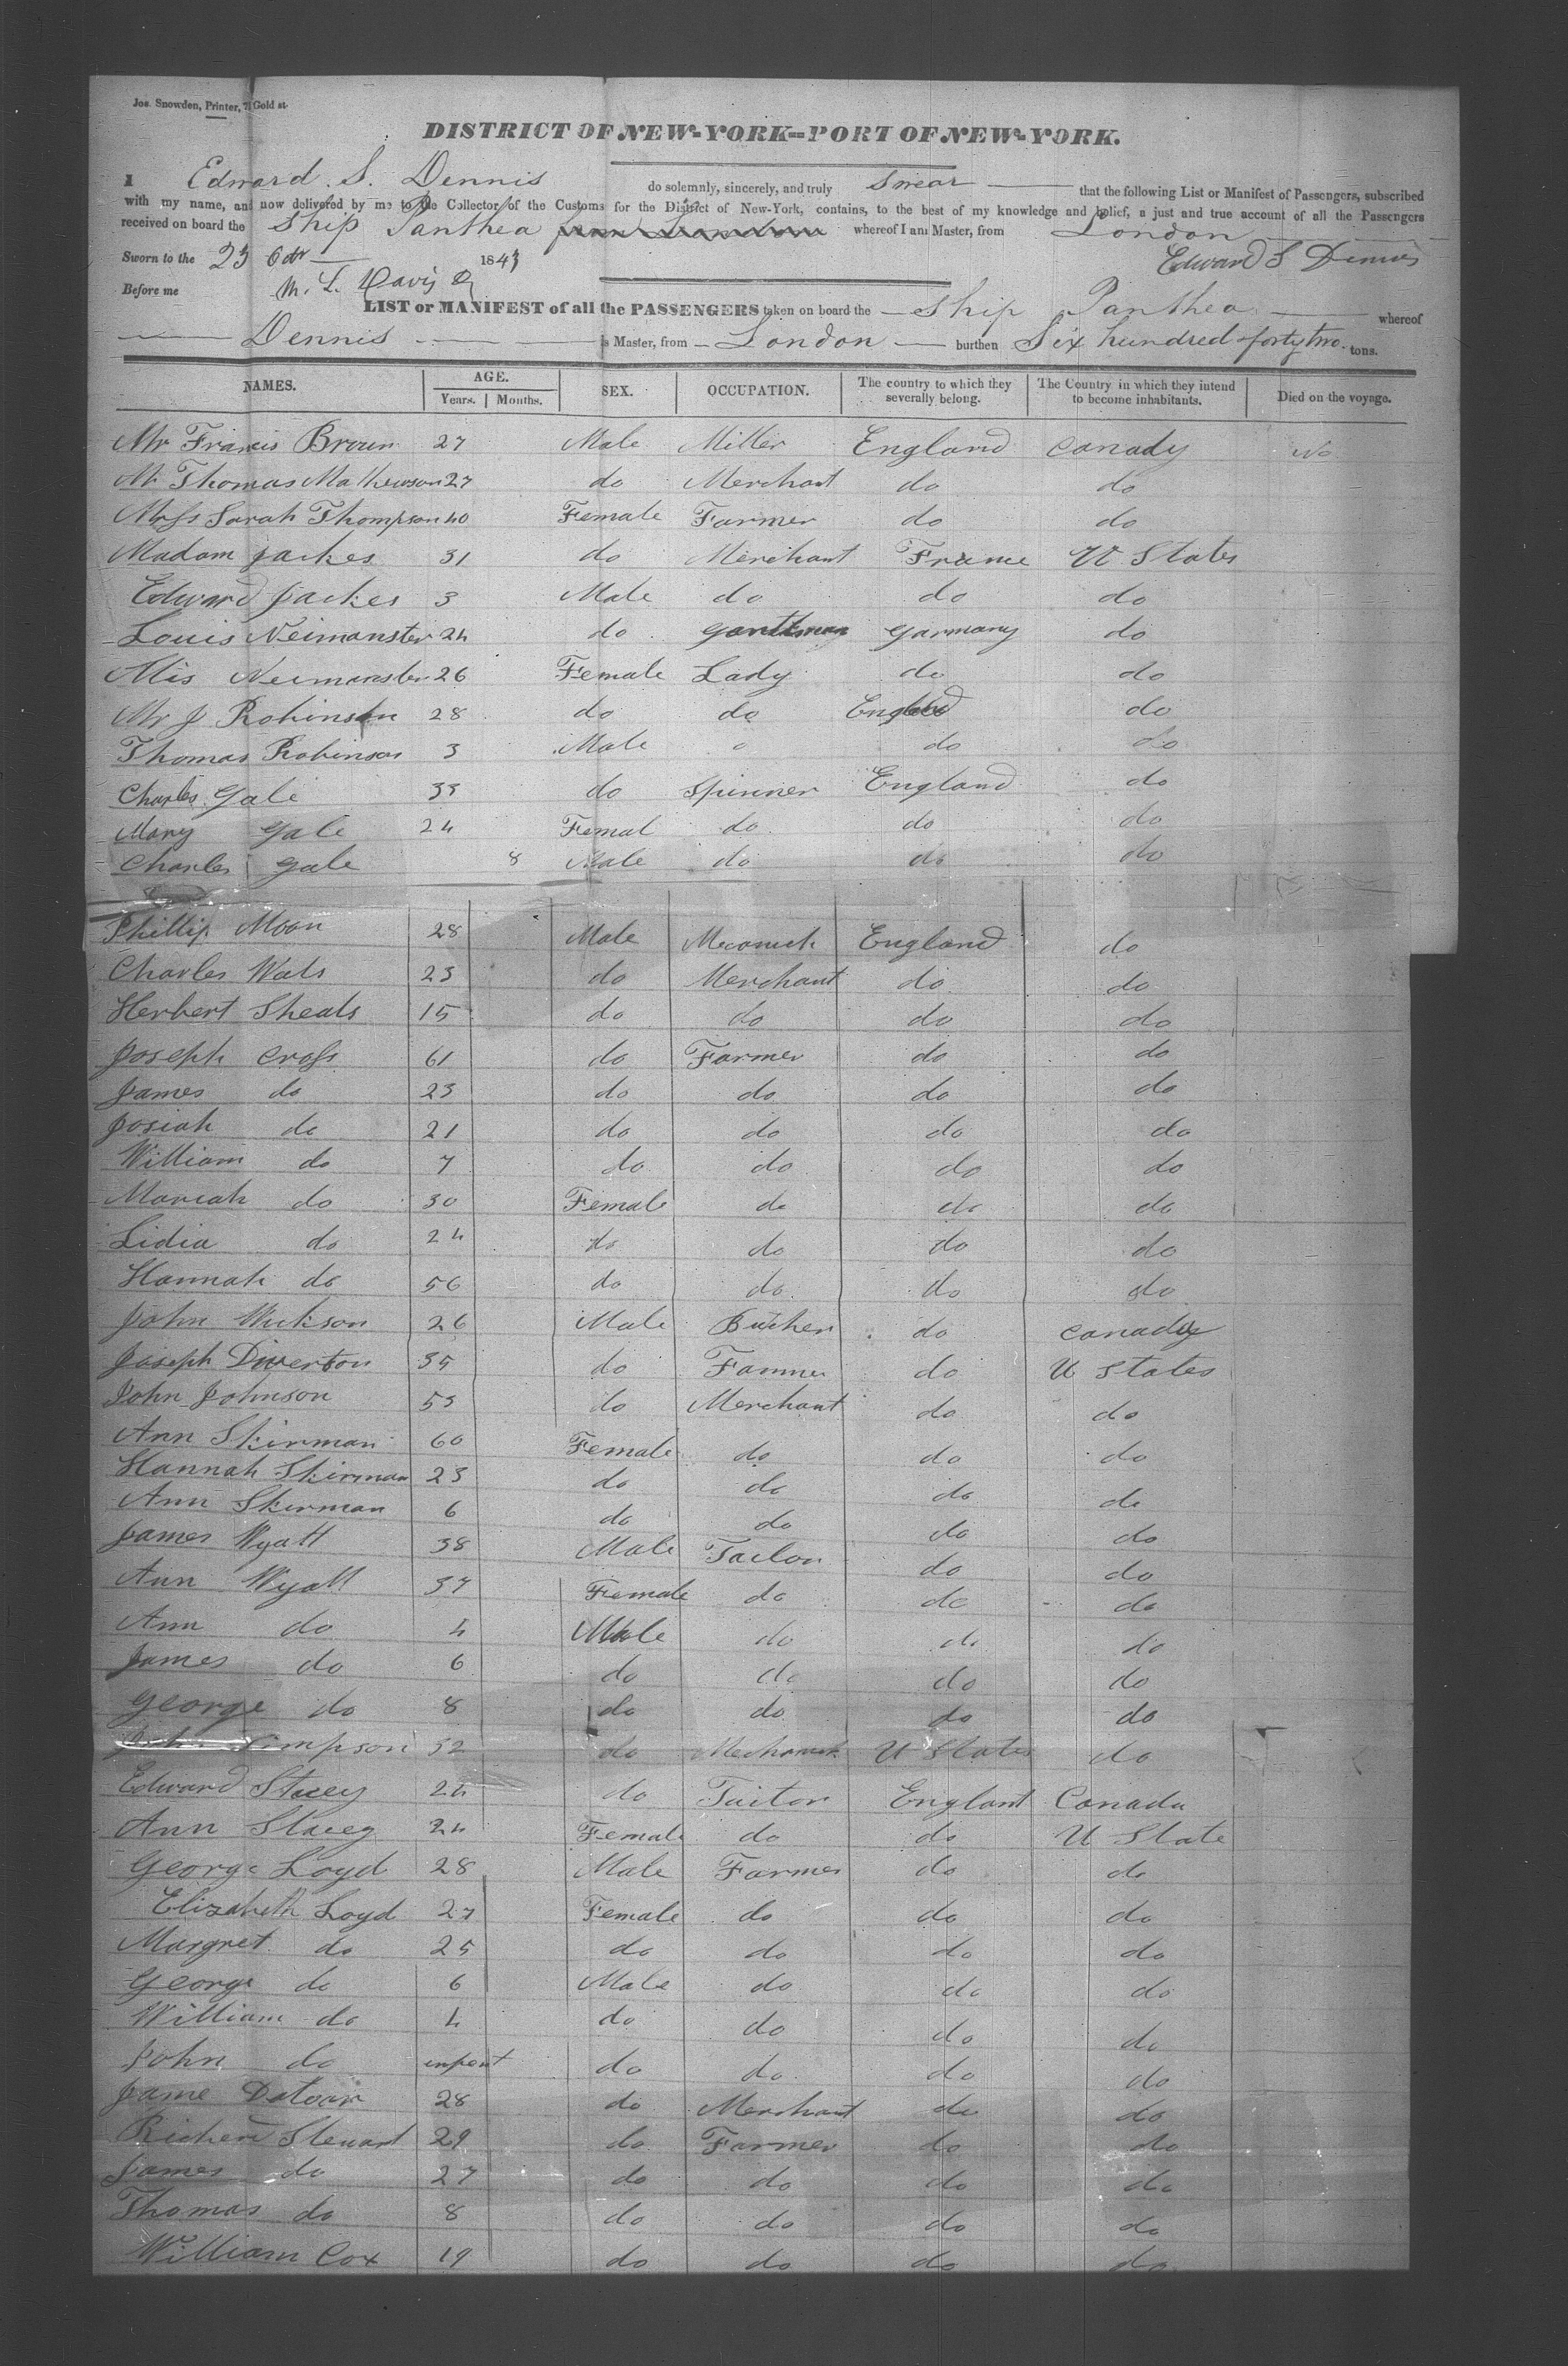 Jos. Snowden, Printer, 7 Gold st.
DISTRICT OF NEW-YORK—PORT OF NEW-YORK.
I Edward. S. Dennis do solemnly, sincerely, and truly Swear that the following List or Manifest of Passengers, subscribed
with my name, and now delivered by me to the Collector of the Customs for the District of New-York, contains, to the best of my knowledge and belief, a just and true account of all the Passengers
received on board the Ship Panthea whereof I am Master, from London
Sworn to the 23 Octr 1843 Edward S Dennis
Before me M. L. Davis
LIST or MANIFEST of all the PASSENGERS taken on board the Ship Panthea whereof
Dennis is Master, from London burthen Six hundred forty two tons.
NAMES. AGE. SEX. OCCUPATION. The country to which they severally belong. The Country in which they intend to become inhabitants. Died on the voyage.
Years. Months.
Mr Francis Brown 27 Male Miller England Canady No
Mr Thomas Mathewson 27 do Merchant do do
Mrss Sarah Thompson 40 Female Farmer do do
Madam Jackes 31 do Merchant France U States
Edward Jackes 3 Male do do do
Louis Neimanster 24 do Gentleman Garmany do
Mis Neimanster 26 Female Lady do do
Mr J Robinson 28 do do England do
Thomas Robinson 3 Male do do
Charles Gale 33 do Spinner England do
Mary Gale 24 Femal do do do
Charles Gale 8 Male do do do
Phillip Moon 28 Male Mecanich England do
Charles Wats 23 do Merchant do do
Herbert Sheals 15 do do do do
Joseph Cross 61 do Farmer do do
James do 23 do do do do
Josiah do 21 do do do do
William do 7 do do do do
Mariah do 30 Female do do do
Lidia do 24 do do do do
Hannah do 56 do do do do
John Wickson 26 Male Butcher do Canady
Joseph Diverton 35 do Farmer do U States
John Johnson 53 do Merchant do do
Ann Skirman 60 Female do do do
Hannah Skirman 23 do do do do
Ann Skirman 6 do do do do
James Wyatt 38 Male Tailor do do
Ann Wyatt 37 Female do do do
Ann do 4 Male do do do
James do 6 do do do do
George do 8 do do do do
John Simpson 32 do Mechanick U States do
Edward Stacey 24 do Tailor Englant Canada
Ann Stacey 24 Female do do U State
George Loyd 28 Male Farmer do do
Elizabeth Loyd 27 Female do do do
Margret do 25 do do do do
George do 6 Male do do do
William do 4 do do do do
John do infant do do do do
Jame 28 do Merchant do do
Richerd Stewart 29 do Farmer do do
James do 27 do do do do
Thomas do 8 do do do do
William Cox 19 do do do do